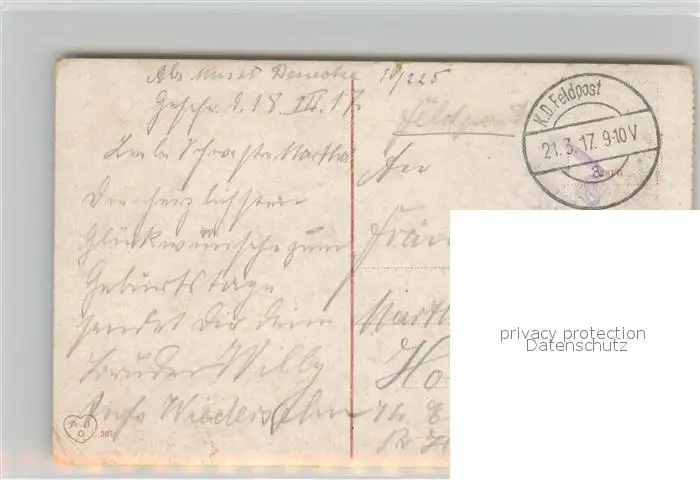 Abs. Musk. Deneckе 10/225
Geschr. d. 18. III. 17.
Feldpost
K.D. Feldpost
21.3.17. 9-10 V
Liebe Schwester Martha
Die herzlichsten
Glückwünsche zum
Geburtstage
sendet Dir dein
Bruder Willy
Aufs Wiedersehn
An
Fräu
Marth
Ho
A B O
privacy protection
Datenschutz